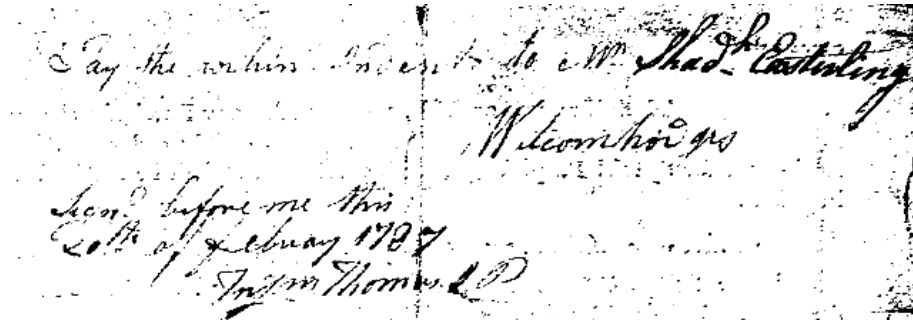 Pay the within Indent to Mr Shadh Easterling
Witcom hodges
Signd before me this
20th of Febuay 1787
Trism Thomas J P